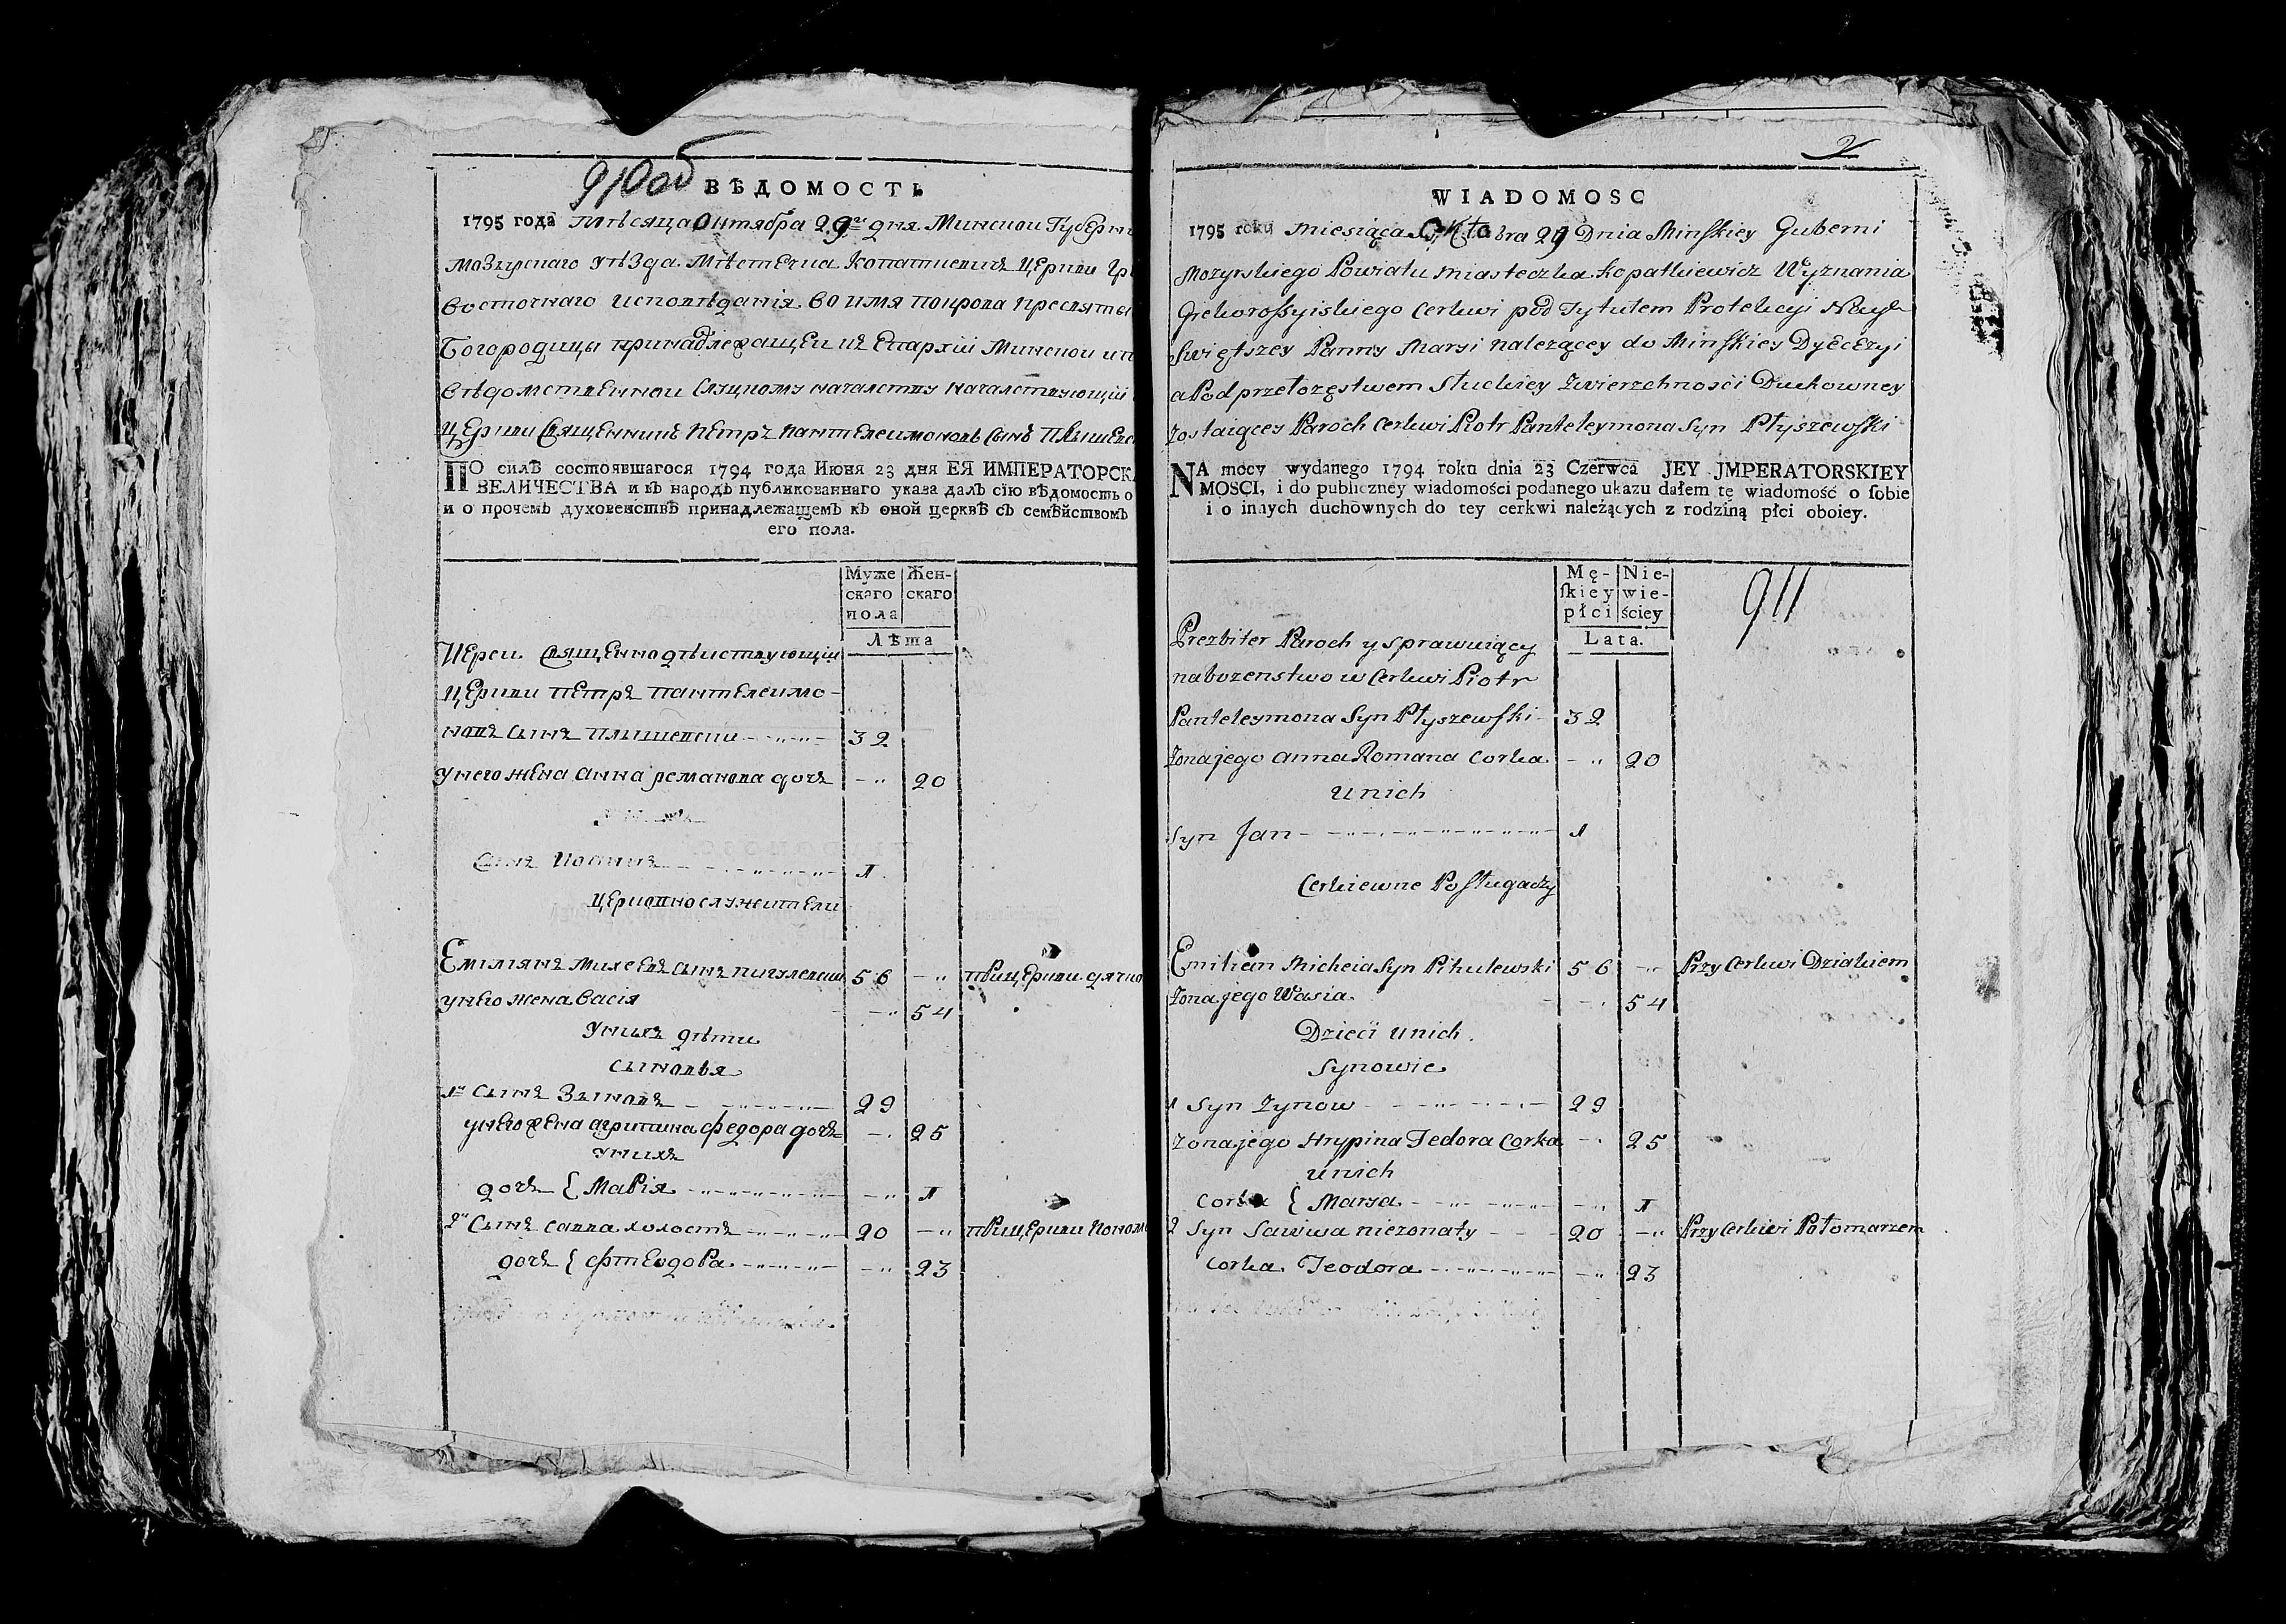 910об
ВѢДОМОСТЬ
1795 года мѣсяца Октября 29го дня Минской Губерн
Мозырскаго уѣзда Мѣстечка Копаткевичъ церкви Гр
восточнаго исповѣданія во имя покрова пресвяты
Богородицы принадлежащеи къ Епархіи Минской и п
вѣдомственной Слуцкому началству началствующій
церкви Священникъ Петръ Пантелеимоновъ сынъ Плышевс
ПО силѣ состоявшагося 1794 года Июня 23 дня ЕЯ ИМПЕРАТОРСК
ВЕЛИЧЕСТВА и въ народъ публикованнаго указа далъ сїю вѣдомость о
и о прочемъ духовенствѣ принадлежащемъ къ оной церквѣ съ семѣйствомъ
его пола.
Муже Жен-
скаго скаго
пола
Лѣта
Иереи Священнодѣиствующіи
церкви Петръ Пантелеимо-
новъ сынъ Плышевски 32
у него жена Анна Романова дочь - 20
у нихъ
Сынъ Иоаннъ 1
церковнослужители
Емиліянъ Михеевъ сынъ Пигулевски 56 - при церкви дячко
у него жена Васія - 54
у нихъ дѣти
сыновья
1й сынъ Зыновъ 29
у него жена Агрипина Федора дочь - 25
у нихъ
дочь { Марія - 1
2й сынъ Савва холостъ 20 - при церкви поном
дочь { Фтеодора - 23
2
WIADOMOSC
1795 roku miesiąca Oktobra 29 Dnia Minſkiey Guberni
Mozyrskiego Powiatu miasteczka Kopatkiewicz Wyznania
Grekoroſsyiskiego Cerkwi pod Tytułem Protekcyi Nayſ
Swiętszey Panny Maryi nalezącey do Minſkiey Dyecezyi
a Pod przełozęstwem Słuckiey Zwierzchnosci Duchowney
zostaiącey Paroch Cerkwi Piotr Panteleymona Syn Płyszewſki
NA mocy wydanego 1794 roku dnia 23 Czerwca JEY JMPERATORSKIEY
MOSCI, i do publiczney wiadomości podanego ukazu dałem tę wiadomość o ſobie
i o innych duchownych do tey cerkwi należących z rodziną płci oboiey.
Mę- Nie-
ſkiey wie-
płci ściey
Lata.
911
Prezbiter Paroch y sprawuiący
nabozenstwo w Cerkwi Piotr
Panteleymona Syn Płyszewſki 32
Zona jego Anna Romana Corka - 20
u nich
Syn Jan 1
Cerkiewne Poſługaczy
Emilian Micheia Syn Pihulewski 56 - Przy Cerkwi Dziakiem
Zona jego Wasia - 54
Dzieci u nich
Synowie
1 Syn Zynow 29
Zona jego Hrypina Fedora Corka - 25
u nich
Corka { Marya - 1
2 Syn Sawwa niezonaty 20 - Przy Cerkwi Połomarzem
Corka Teodora - 23